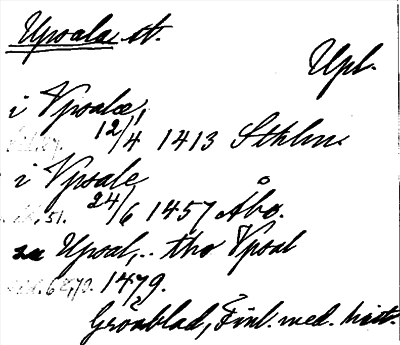 Upsala st.
Upl.
i Vpsalæ,
12/4 1413 Sthlm.
i Vpsale
51. 24/6 1457 Åbo.
Upsal,.. tho Vpsal
1479.
Grönblad, Finl. med. hist.